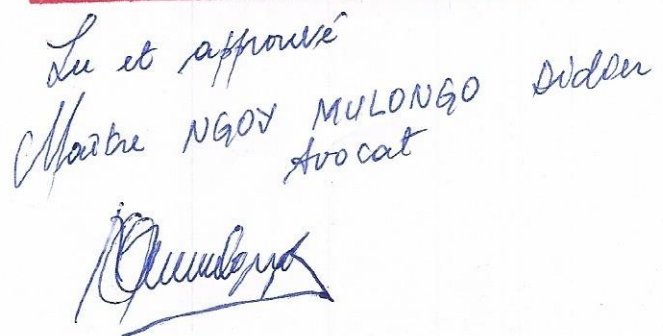 Lu et approuvé
Maître NGOY MULONGO Didier
Avocat